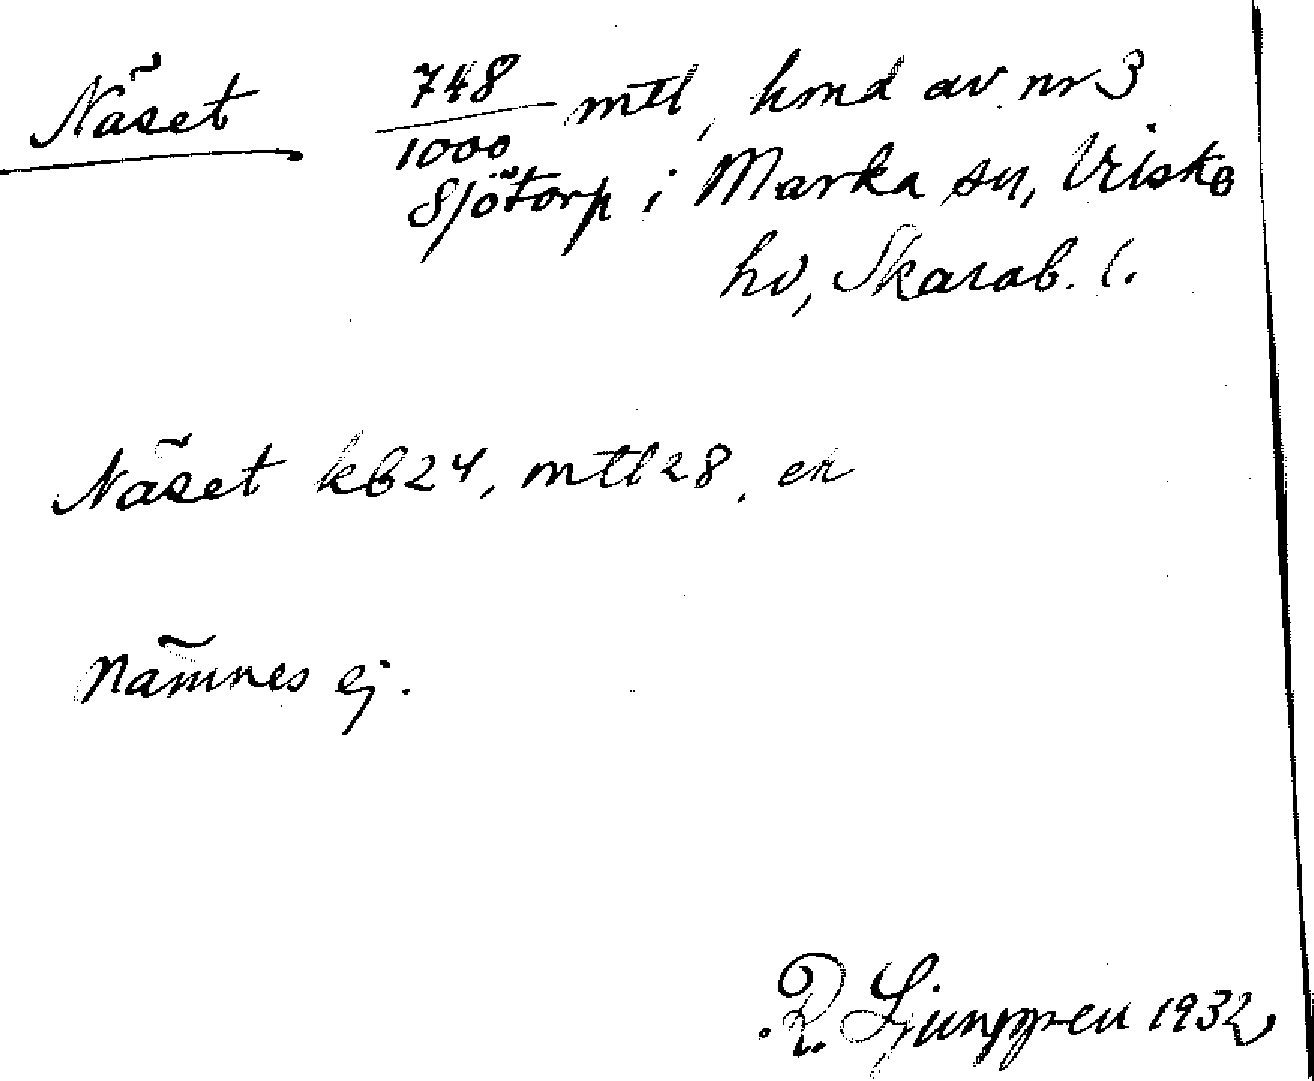 Näset 748/1000 mtl, hmd av nr 3
Sjötorp i Marka sn, Vilske
hd, Skarab. l.
Näset kb 24, mtl 28, ek
Nämnes ej.
R. Ljunggren 1932